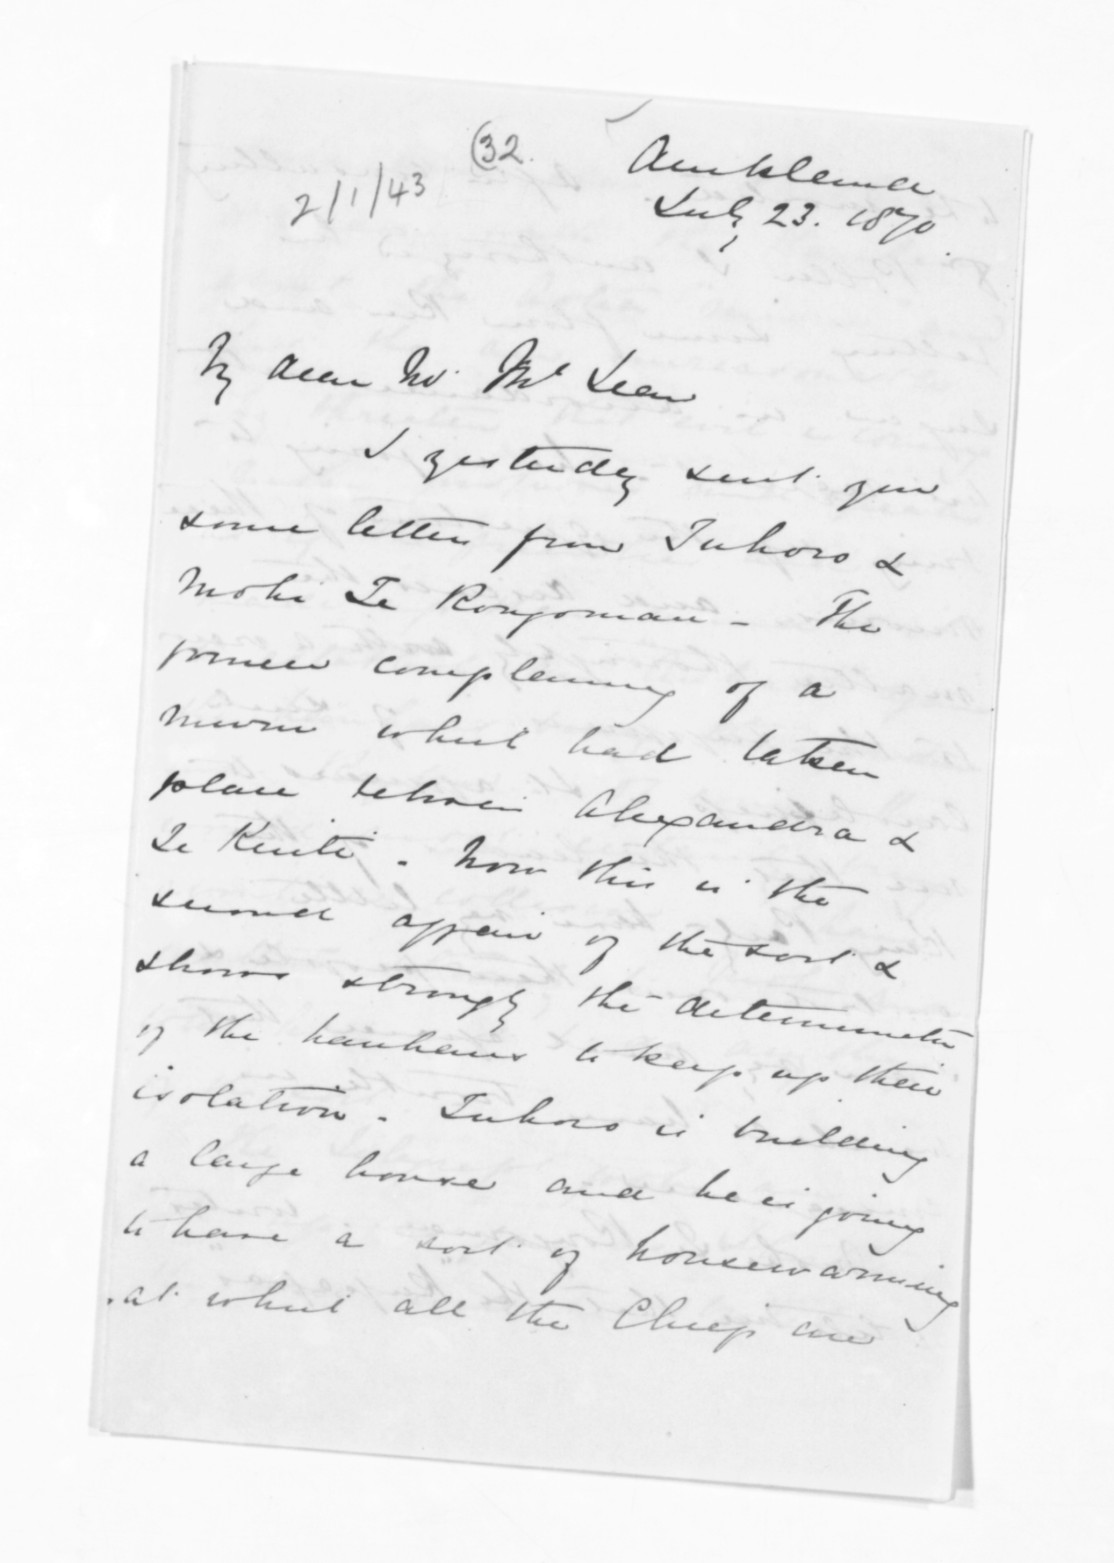 (32.
2/1/43
Auckland
July 23. 1870.
My dear Mr. McLean
I yesterday sent you
some letters from Tuhoro &
Mohi Te Rongomau - The
former complaining of a
muru which had taken
place between Alexandra &
Te Kuiti. Now this is the
second affair of the sort &
shows strongly the determination
of the hauhaus to keep up their
isolation. Tuhoro is building
a large house and he is going
to have a sort of housewarming
at which all the Chiefs are